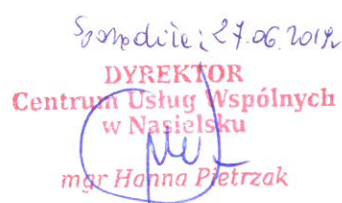 27.06.2019r.
DYREKTOR
Centrum Usług Wspólnych
w Nasielsku
mgr Hanna Pietrzak